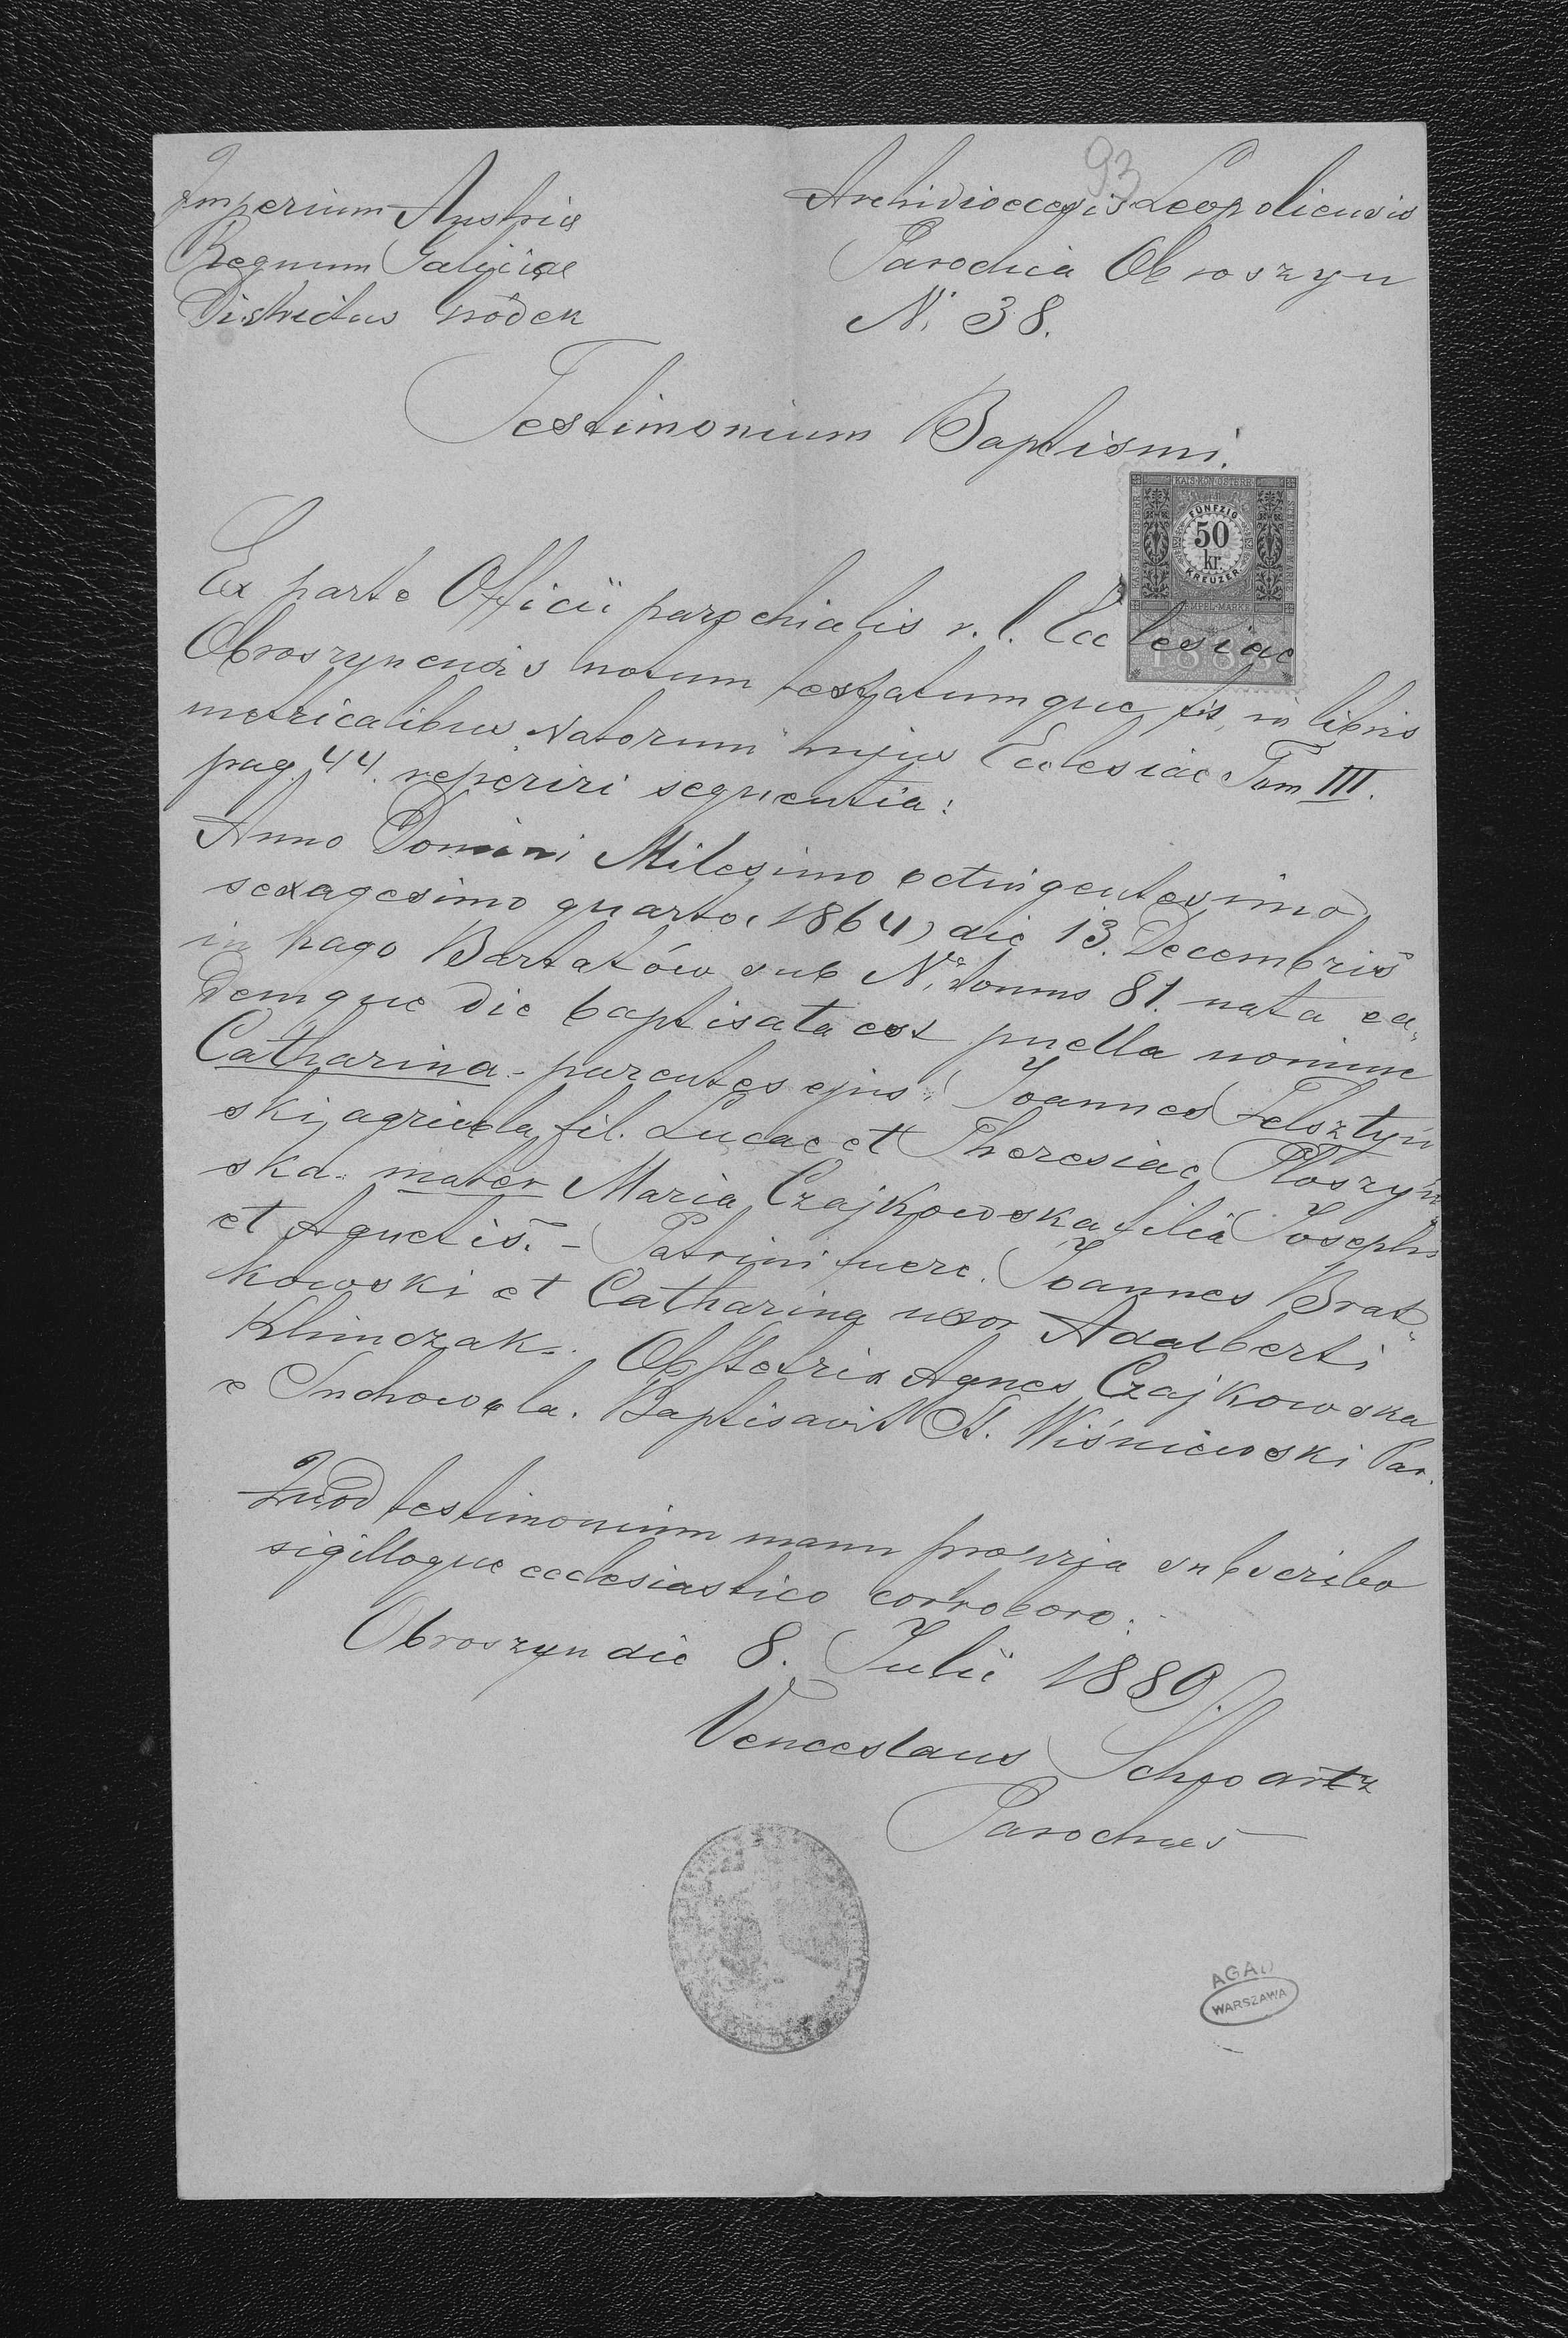 93
Imperium Austriae
Regnum Galiciae
Districtus Gródek
Archidioecesis Leopoliensis
Parochia Obroszyn
N. 38.
Testimonium Baptismi.
KAIS. KÖN. ÖSTERR.
STEMPEL-MARKE
FÜNFZIG
50
kr.
KREUZER
Ex parte Officii parochialis r. l. Ecclesiae
Obroszynensis notum testatumque fit, in libris
metricalibus Natorum hujus Ecclesiae Tom III.
pag. 44. reperiri sequentia:
Anno Domini Milesimo octingentesimo
sexagesimo quarto (1864) die 13. Decembris
in pago Bartatów sub Nr. domus 81. nata ea-
demque die baptisata est puella nomine
Catharina - parentes ejus: Joannes Felsztyń
ski agricola fil. Lucae et Theresiae Płoszyń
ska. mater Maria Czajkowska filia Josephi
et Agnetis. - Patrini fuere. Joannes Brat-
kowski et Catharina uxor Adalberti
Klimczak. Obstetrix Agnes Czajkowska
e Suchowola. Baptisavit A. Wiśniewski Par.
Quod testimonium manu propria subscribo
sigilloque ecclesiastico corroboro.
Obroszyn die 8. Julii 1889.
Venceslaus Schwartz
Parochus
AGAD
WARSZAWA